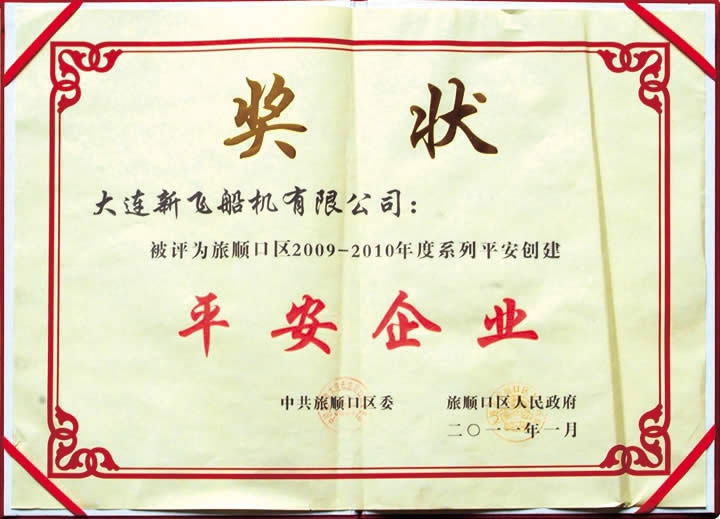 奖状
大连新飞船机有限公司：
被评为旅顺口区2009-2010年度系列平安创建
平安企业
中共旅顺口区委 旅顺口区人民政府
二〇一一年一月